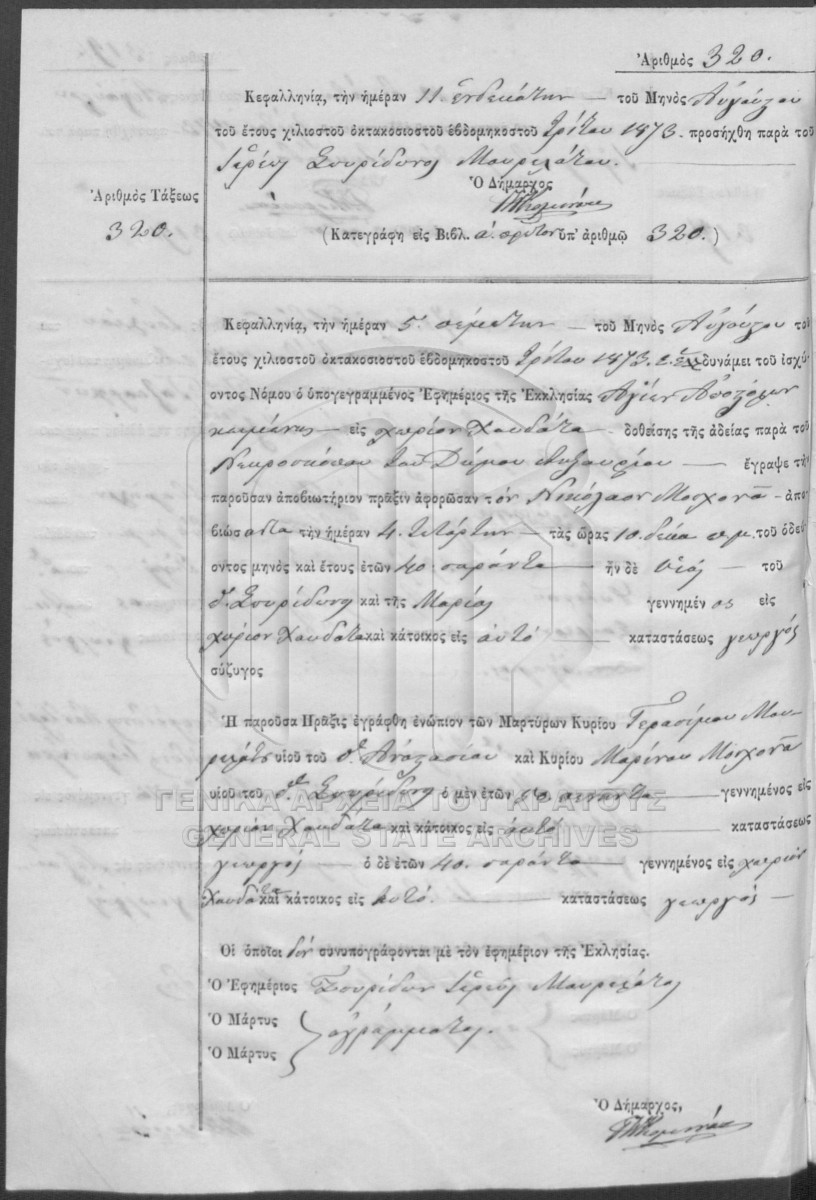 Ἀριθμὸς 320.
Κεφαλληνίᾳ, τὴν ἡμέραν 11 ἑνδεκάτην — τοῦ Μηνὸς Αὐγούστου
τοῦ ἔτους χιλιοστοῦ ὀκτακοσιοστοῦ ἑβδομηκοστοῦ τρίτου 1873 - προσήχθη παρὰ τοῦ
Ἱερέως Σπυρίδωνος Μαυρελάτου.
Ὁ Δήμαρχος
Ἀριθμὸς Τάξεως
320.
(Κατεγράφη εἰς Βιβλ. α. πρῶτον ὑπ' ἀριθμῷ 320.)
Κεφαλληνίᾳ, τὴν ἡμέραν 5. πέμπτην — τοῦ Μηνὸς Αὐγούστου τοῦ
ἔτους χιλιοστοῦ ὀκτακοσιοστοῦ ἑβδομηκοστοῦ τρίτου 1873. δυνάμει τοῦ ἰσχύ-
οντος Νόμου ὁ ὑπογεγραμμένος Ἐφημέριος τῆς Ἐκκλησίας Ἁγίων Ἀποστόλων
κειμένης — εἰς χωρίον Χαυδάτα — δοθείσης τῆς ἀδείας παρὰ τοῦ
Νεκροσκόπου τοῦ Δήμου Ληξουρίου — ἔγραψε τὴν
παροῦσαν ἀποβιωτήριον πρᾶξιν ἀφορῶσαν τόν Νικόλαον Μοσχονᾶ - ἀπο-
βιώσαντα τὴν ἡμέραν 4. τετάρτην — τὰς ὥρας 10. δέκα π.μ. τοῦ ὁδεύ-
οντος μηνὸς καὶ ἔτους ἐτῶν 40. σαράντα — ἦν δὲ υἱός — τοῦ
Σπυρίδωνος καὶ τῆς Μαρίας γεννημένος εἰς
χωρίον Χαυδάτα καὶ κάτοικος εἰς αὐτό — καταστάσεως γεωργός
σύζυγος
Ἡ παροῦσα Πρᾶξις ἐγράφθη ἐνώπιον τῶν Μαρτύρων Κυρίου Γερασίμου Μαυ-
ρελάτου υἱοῦ τοῦ Ἀναστασίου καὶ Κυρίου Μαρίνου Μοσχονᾶ
υἱοῦ τοῦ Σπυρίδωνος ὁ μὲν ἐτῶν — γεννημένος εἰς
ΓΕΝΙΚΑ ΑΡΧΕΙΑ ΤΟΥ ΚΡΑΤΟΥΣ
χωρίον Χαυδάτα καὶ κάτοικος εἰς αὐτό — καταστάσεως
GENERAL STATE ARCHIVES
γεωργός — ὁ δὲ ἐτῶν 40. σαράντα — γεννημένος εἰς χωρίον
Χαυδάτα καὶ κάτοικος εἰς αὐτό. — καταστάσεως γεωργός —
Οἱ ὁποῖοι δέν συνυπογράφονται μὲ τὸν ἐφημέριον τῆς Ἐκλησίας.
Ὁ Ἐφημέριος Σπυρίδων Ἱερεύς Μαυρελάτος
Ὁ Μάρτυς
ἀγράμματοι.
Ὁ Μάρτυς
Ὁ Δήμαρχος,